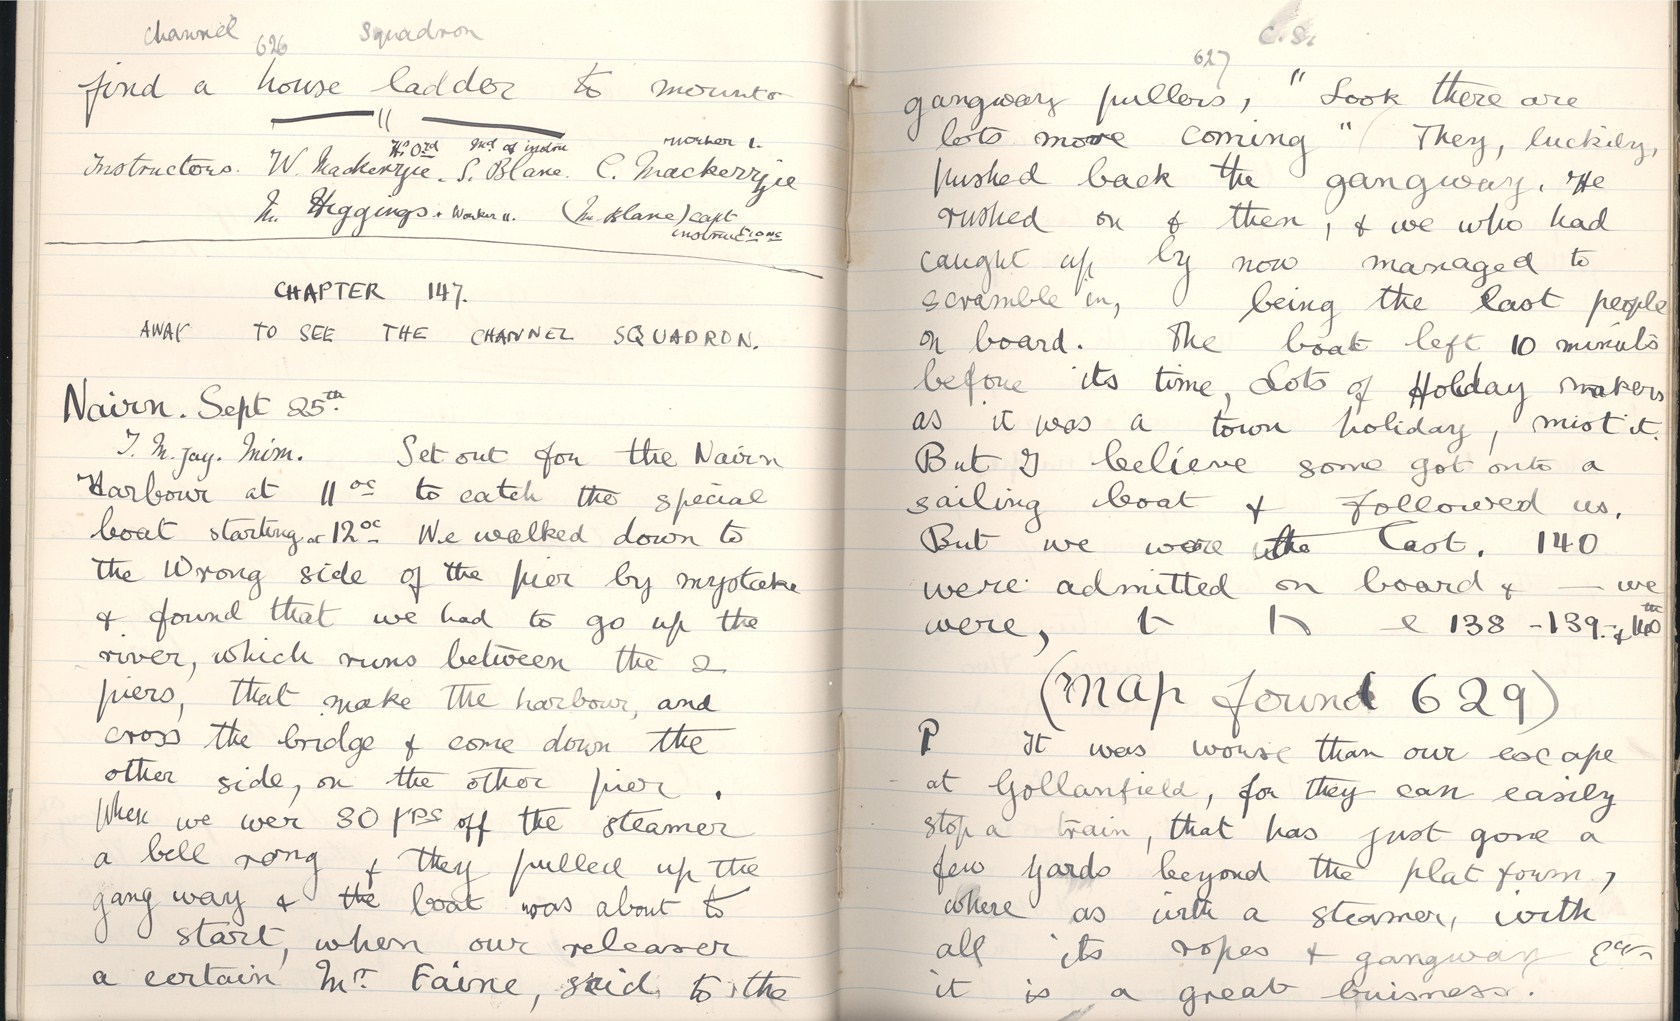 Channel Squadron
626
find a house ladder to mounto
Hd Ord Worker I.
Instructors. W. Mackenzie. S. Blane. C. Mackenzie
M. Higgings. Worker II. (M. Blane) capt
instructions
CHAPTER 147.
AWAY TO SEE THE CHANNEL SQUADRON.
Nairn. Sept 25th.
Set out for the Nairn
Harbour at 11 oc to catch the special
boat starting at 12 oc We walked down to
the Wrong side of the pier by mystake
& found that we had to go up the
river, which runs between the 2
piers, that make the harbour, and
cross the bridge & come down the
other side, on the other pier.
When we wer 30 yds off the steamer
a bell rong & they pulled up the
gang way & the boat was about to
start, when our releaser
a certain Mr. Faine, said to the
C.S.
627
gangway pullers, "Look there are
lots more coming" They, luckily,
pushed back the gangway. We
rushed on & then, & we who had
caught up by now managed to
scramble in, being the last people
on board. The boat left 10 minuts
before its time, Lots of Holiday makers
as it was a town holiday, mist it.
But I believe some got onto a
sailing boat & followed us.
But we were the last. 140
were admitted on board & — we
were, 138 - 139. & 140th
(map found 629)
P It was worse than our escape
at Gollanfield, for they can easily
stop a train, that has just gone a
few yards beyond the platform,
where as with a steamer, with
all its ropes & gangway
it is a great buisness.